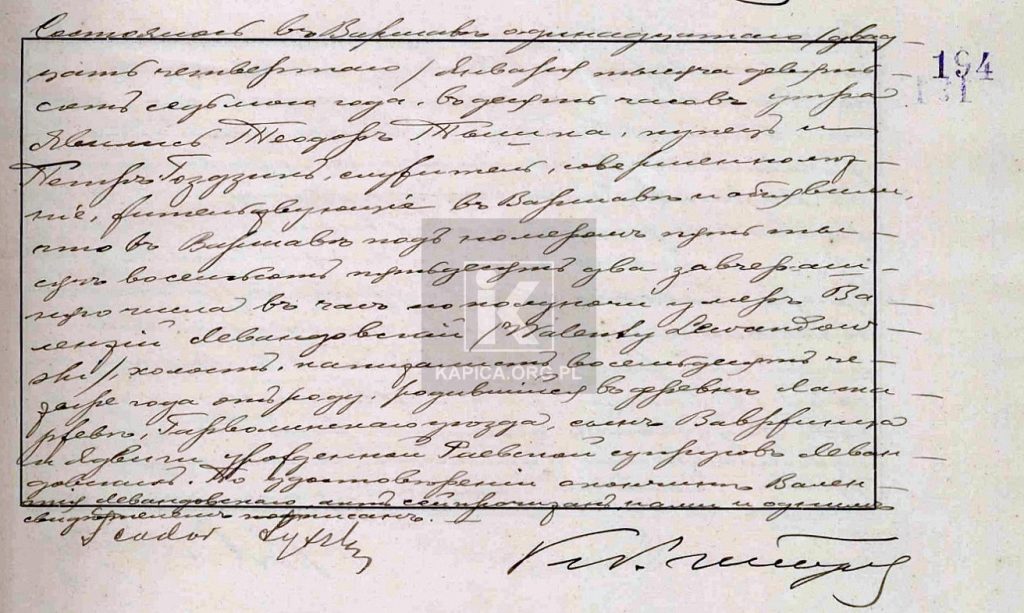 Состоялось въ Варшавѣ одинадцатаго /двад
цать четвертаго/ Января тысяча девять
194
сотъ седьмого года, въ десять часовъ утра
Явились Теодоръ, купецъ и
Петръ Гоздзикъ, служитель, совершеннолѣт
ніе, жительствующіе въ Варшавѣ и объявили,
что въ Варшавѣ подъ номеромъ пять ты
сячъ восемьсотъ пятьдесятъ два завчераш
няго числа въ часъ по полуночи умеръ Ва
лентій Левандовскій /Walenty Lewandow
ski/, холостъ, капиталистъ, восемьдесятъ че
тыре года отъ роду, родившійся въ деревнѣ Ласка
ржевѣ, Гарволинскаго уѣзда, сынъ Ваврженца
и Ядвиги урожденной Раевской супруговъ Леван
довскихъ. По удостовѣреніи о кончинѣ Вален
тія Левандовскаго, актъ сей прочитанъ, нами и однимъ
свидѣтелемъ подписанъ.
Teodor
KAPICA.ORG.PL